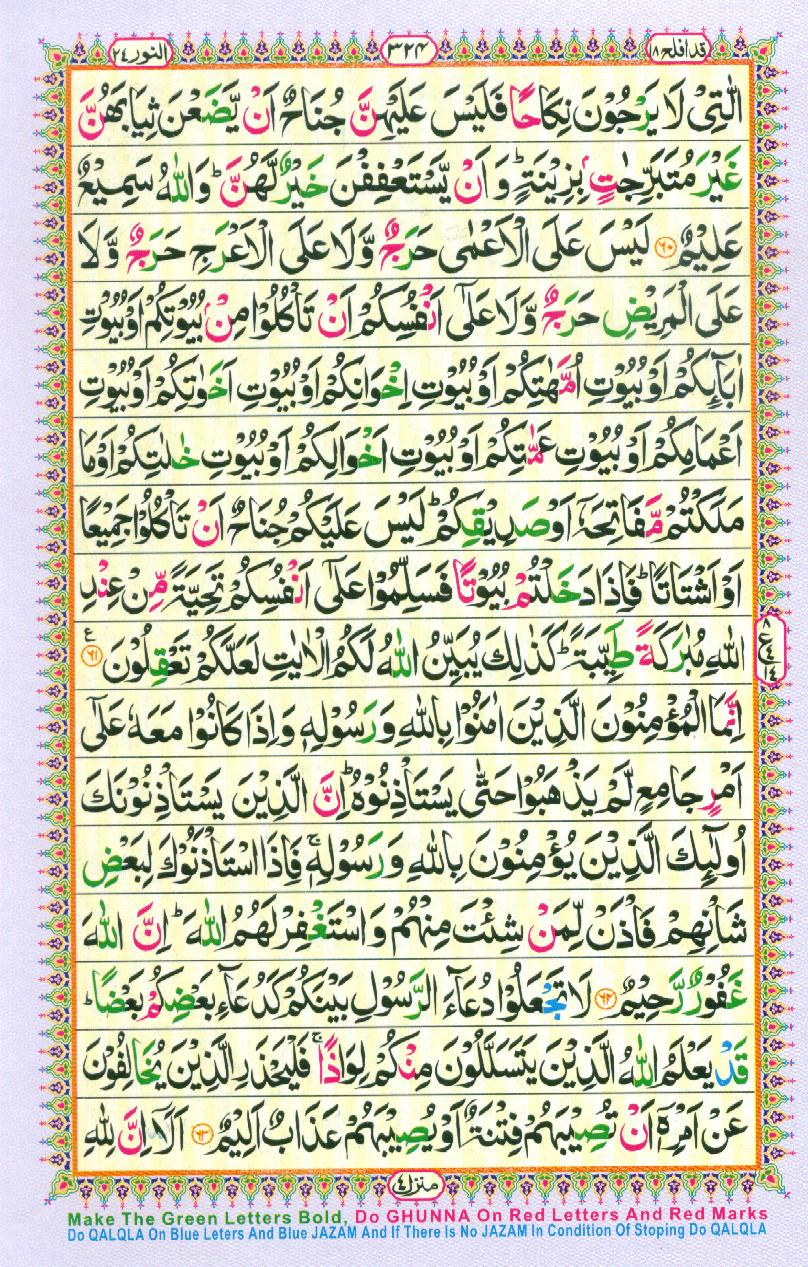 قد افلح ١٨
٣٢٤
النور ٢٤
الّٰتِیْ لَا یَرْجُوْنَ نِكَاحًا فَلَیْسَ عَلَیْهِنَّ جُنَاحٌ اَنْ یَّضَعْنَ ثِیَابَهُنَّ
غَیْرَ مُتَبَرِّجٰتٍۭ بِزِیْنَةٍؕ وَ اَنْ یَّسْتَعْفِفْنَ خَیْرٌ لَّهُنَّؕ وَ اللّٰهُ سَمِیْعٌ
عَلِیْمٌ ﴿۶۰﴾ لَیْسَ عَلَى الْاَعْمٰى حَرَجٌ وَّ لَا عَلَى الْاَعْرَجِ حَرَجٌ وَّ لَا
عَلَى الْمَرِیْضِ حَرَجٌ وَّ لَا عَلٰۤى اَنْفُسِكُمْ اَنْ تَاْكُلُوْا مِنْۢ بُیُوْتِكُمْ اَوْ بُیُوْتِ
اٰبَآىِٕكُمْ اَوْ بُیُوْتِ اُمَّهٰتِكُمْ اَوْ بُیُوْتِ اِخْوَانِكُمْ اَوْ بُیُوْتِ اَخَوٰتِكُمْ اَوْ بُیُوْتِ
اَعْمَامِكُمْ اَوْ بُیُوْتِ عَمّٰتِكُمْ اَوْ بُیُوْتِ اَخْوَالِكُمْ اَوْ بُیُوْتِ خٰلٰتِكُمْ اَوْ مَا
مَلَكْتُمْ مَّفَاتِحَهٗۤ اَوْ صَدِیْقِكُمْؕ لَیْسَ عَلَیْكُمْ جُنَاحٌ اَنْ تَاْكُلُوْا جَمِیْعًا
اَوْ اَشْتَاتًاؕ فَاِذَا دَخَلْتُمْ بُیُوْتًا فَسَلِّمُوْا عَلٰۤى اَنْفُسِكُمْ تَحِیَّةً مِّنْ عِنْدِ
اللّٰهِ مُبٰرَكَةً طَیِّبَةًؕ كَذٰلِكَ یُبَیِّنُ اللّٰهُ لَكُمُ الْاٰیٰتِ لَعَلَّكُمْ تَعْقِلُوْنَ ﴿۶۱﴾ ع
اِنَّمَا الْمُؤْمِنُوْنَ الَّذِیْنَ اٰمَنُوْا بِاللّٰهِ وَ رَسُوْلِهٖ وَ اِذَا كَانُوْا مَعَهٗ عَلٰۤى
اَمْرٍ جَامِعٍ لَّمْ یَذْهَبُوْا حَتّٰى یَسْتَاْذِنُوْهُؕ اِنَّ الَّذِیْنَ یَسْتَاْذِنُوْنَكَ
اُولٰٓىِٕكَ الَّذِیْنَ یُؤْمِنُوْنَ بِاللّٰهِ وَ رَسُوْلِهٖۚ فَاِذَا اسْتَاْذَنُوْكَ لِبَعْضِ
شَاْنِهِمْ فَاْذَنْ لِّمَنْ شِئْتَ مِنْهُمْ وَ اسْتَغْفِرْ لَهُمُ اللّٰهَؕ اِنَّ اللّٰهَ
غَفُوْرٌ رَّحِیْمٌ ﴿۶۲﴾ لَا تَجْعَلُوْا دُعَآءَ الرَّسُوْلِ بَیْنَكُمْ كَدُعَآءِ بَعْضِكُمْ بَعْضًاؕ
قَدْ یَعْلَمُ اللّٰهُ الَّذِیْنَ یَتَسَلَّلُوْنَ مِنْكُمْ لِوَاذًاۚ فَلْیَحْذَرِ الَّذِیْنَ یُخَالِفُوْنَ
عَنْ اَمْرِهٖۤ اَنْ تُصِیْبَهُمْ فِتْنَةٌ اَوْ یُصِیْبَهُمْ عَذَابٌ اَلِیْمٌ ﴿۶۳﴾ اَلَاۤ اِنَّ لِلّٰهِ
منزل ٤
Make The Green Letters Bold, Do GHUNNA On Red Letters And Red Marks
Do QALQLA On Blue Leters And Blue JAZAM And If There Is No JAZAM In Condition Of Stoping Do QALQLA